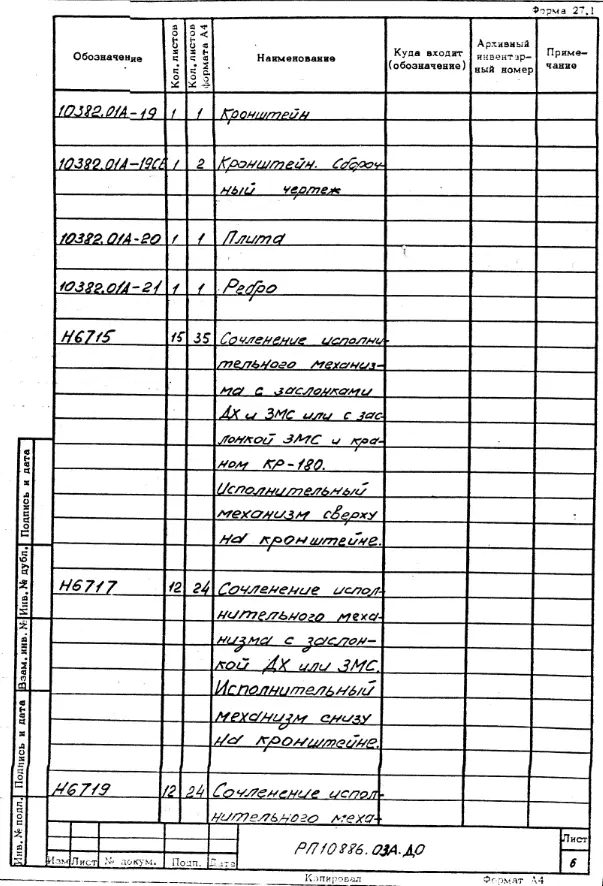 Форма 27.1
Обозначение Кол. листов Кол. листов формата А4 Наименование Куда входит (обозначение) Архивный инвентар- ный номер Приме- чание
10382.01А-19 1 1 Кронштейн
10382.01А-19СБ 1 2 Кронштейн. Сбороч-
ный чертеж
10382.01А-20 1 1 Плита
10382.01А-21 1 1 Ребро
Н6715 15 35 Сочленение исполни-
тельного механиз-
ма с заслонками
ДХ и ЗМС или с зас-
лонкой ЗМС и кра-
ном КР-180.
Исполнительный
механизм сверху
на кронштейне.
Н6717 12 24 Сочленение испол-
нительного меха-
низма с заслон-
кой ДХ или ЗМС.
Исполнительный
механизм снизу
на кронштейне.
Н6719 12 24 Сочленение испол-
нительного меха-
Инв. № подл. Подпись и дата Взам. инв. № Инв. № дубл. Подпись и дата
Изм Лист № докум. Подп. Дата
РП10886.03А.ДО
Лист
6
Копировал Формат А4